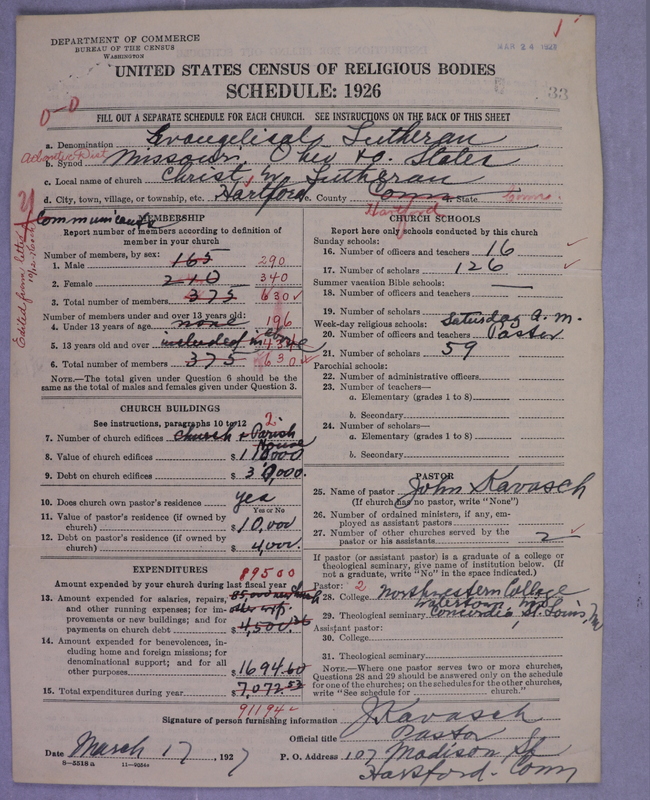 DEPARTMENT OF COMMERCE
BUREAU OF THE CENSUS
WASHINGTON
MAR 24 1927
33
UNITED STATES CENSUS OF RELIGIOUS BODIES
SCHEDULE: 1926
0-0
FILL OUT A SEPARATE SCHEDULE FOR EACH CHURCH. SEE INSTRUCTIONS ON THE BACK OF THIS SHEET
a. Denomination Evangelical Lutheran
Atlantic Dist.
b. Synod Missouri, Ohio + o. States
c. Local name of church Christ Lutheran
d. City, town, village, or township, etc. Hartford e. County Conn f. State Conn.
Hartford
Communicants
Edited from letter
MEMBERSHIP
Report number of members according to definition of
member in your church
Number of members, by sex:
1. Male 165 290
2. Female 210 340
3. Total number of members 375 630
Number of members under and over 13 years old:
4. Under 13 years of age none 196
5. 13 years old and over included in above 434
6. Total number of members 375 630
NOTE.—The total given under Question 6 should be the
same as the total of males and females given under Question 3.
CHURCH BUILDINGS
See instructions, paragraphs 10 to 12
7. Number of church edifices Church + Parish House 2
8. Value of church edifices $
9. Debt on church edifices $
10. Does church own pastor's residence yes
Yes or No
11. Value of pastor's residence (if owned by
church) $ 10,000
12. Debt on pastor's residence (if owned by
church) $ 4,000
EXPENDITURES
Amount expended by your church during last fiscal year
89500
13. Amount expended for salaries, repairs,
and other running expenses; for im-
provements or new buildings; and for
payments on church debt $
14. Amount expended for benevolences, in-
cluding home and foreign missions; for
denominational support; and for all
other purposes $ 1694.60
15. Total expenditures during year $ 7,072.53
91194
CHURCH SCHOOLS
Report here only schools conducted by this church
Sunday schools:
16. Number of officers and teachers 16
17. Number of scholars 126
Summer vacation Bible schools:
18. Number of officers and teachers
19. Number of scholars
Week-day religious schools: Saturday a.m.
20. Number of officers and teachers Pastor
21. Number of scholars 59
Parochial schools:
22. Number of administrative officers
23. Number of teachers—
a. Elementary (grades 1 to 8)
b. Secondary
24. Number of scholars—
a. Elementary (grades 1 to 8)
b. Secondary
PASTOR
25. Name of pastor John Kavasch
(If church has no pastor, write "None")
26. Number of ordained ministers, if any, em-
ployed as assistant pastors
27. Number of other churches served by the
pastor or his assistants 2
If pastor (or assistant pastor) is a graduate of a college or
theological seminary, give name of institution below. (If
not a graduate, write "No" in the space indicated.)
Pastor: 2
28. College Northwestern College
Watertown
29. Theological seminary Concordia, St. Louis, Mo
Assistant pastor:
30. College
31. Theological seminary
NOTE.—Where one pastor serves two or more churches,
Questions 28 and 29 should be answered only on the schedule
for one of the churches; on the schedules for the other churches,
write "See schedule for church."
Signature of person furnishing information J. Kavasch
Official title Pastor
Date March 17, 1927 P. O. Address 107 Madison St
Hartford. Conn
8-5518 a